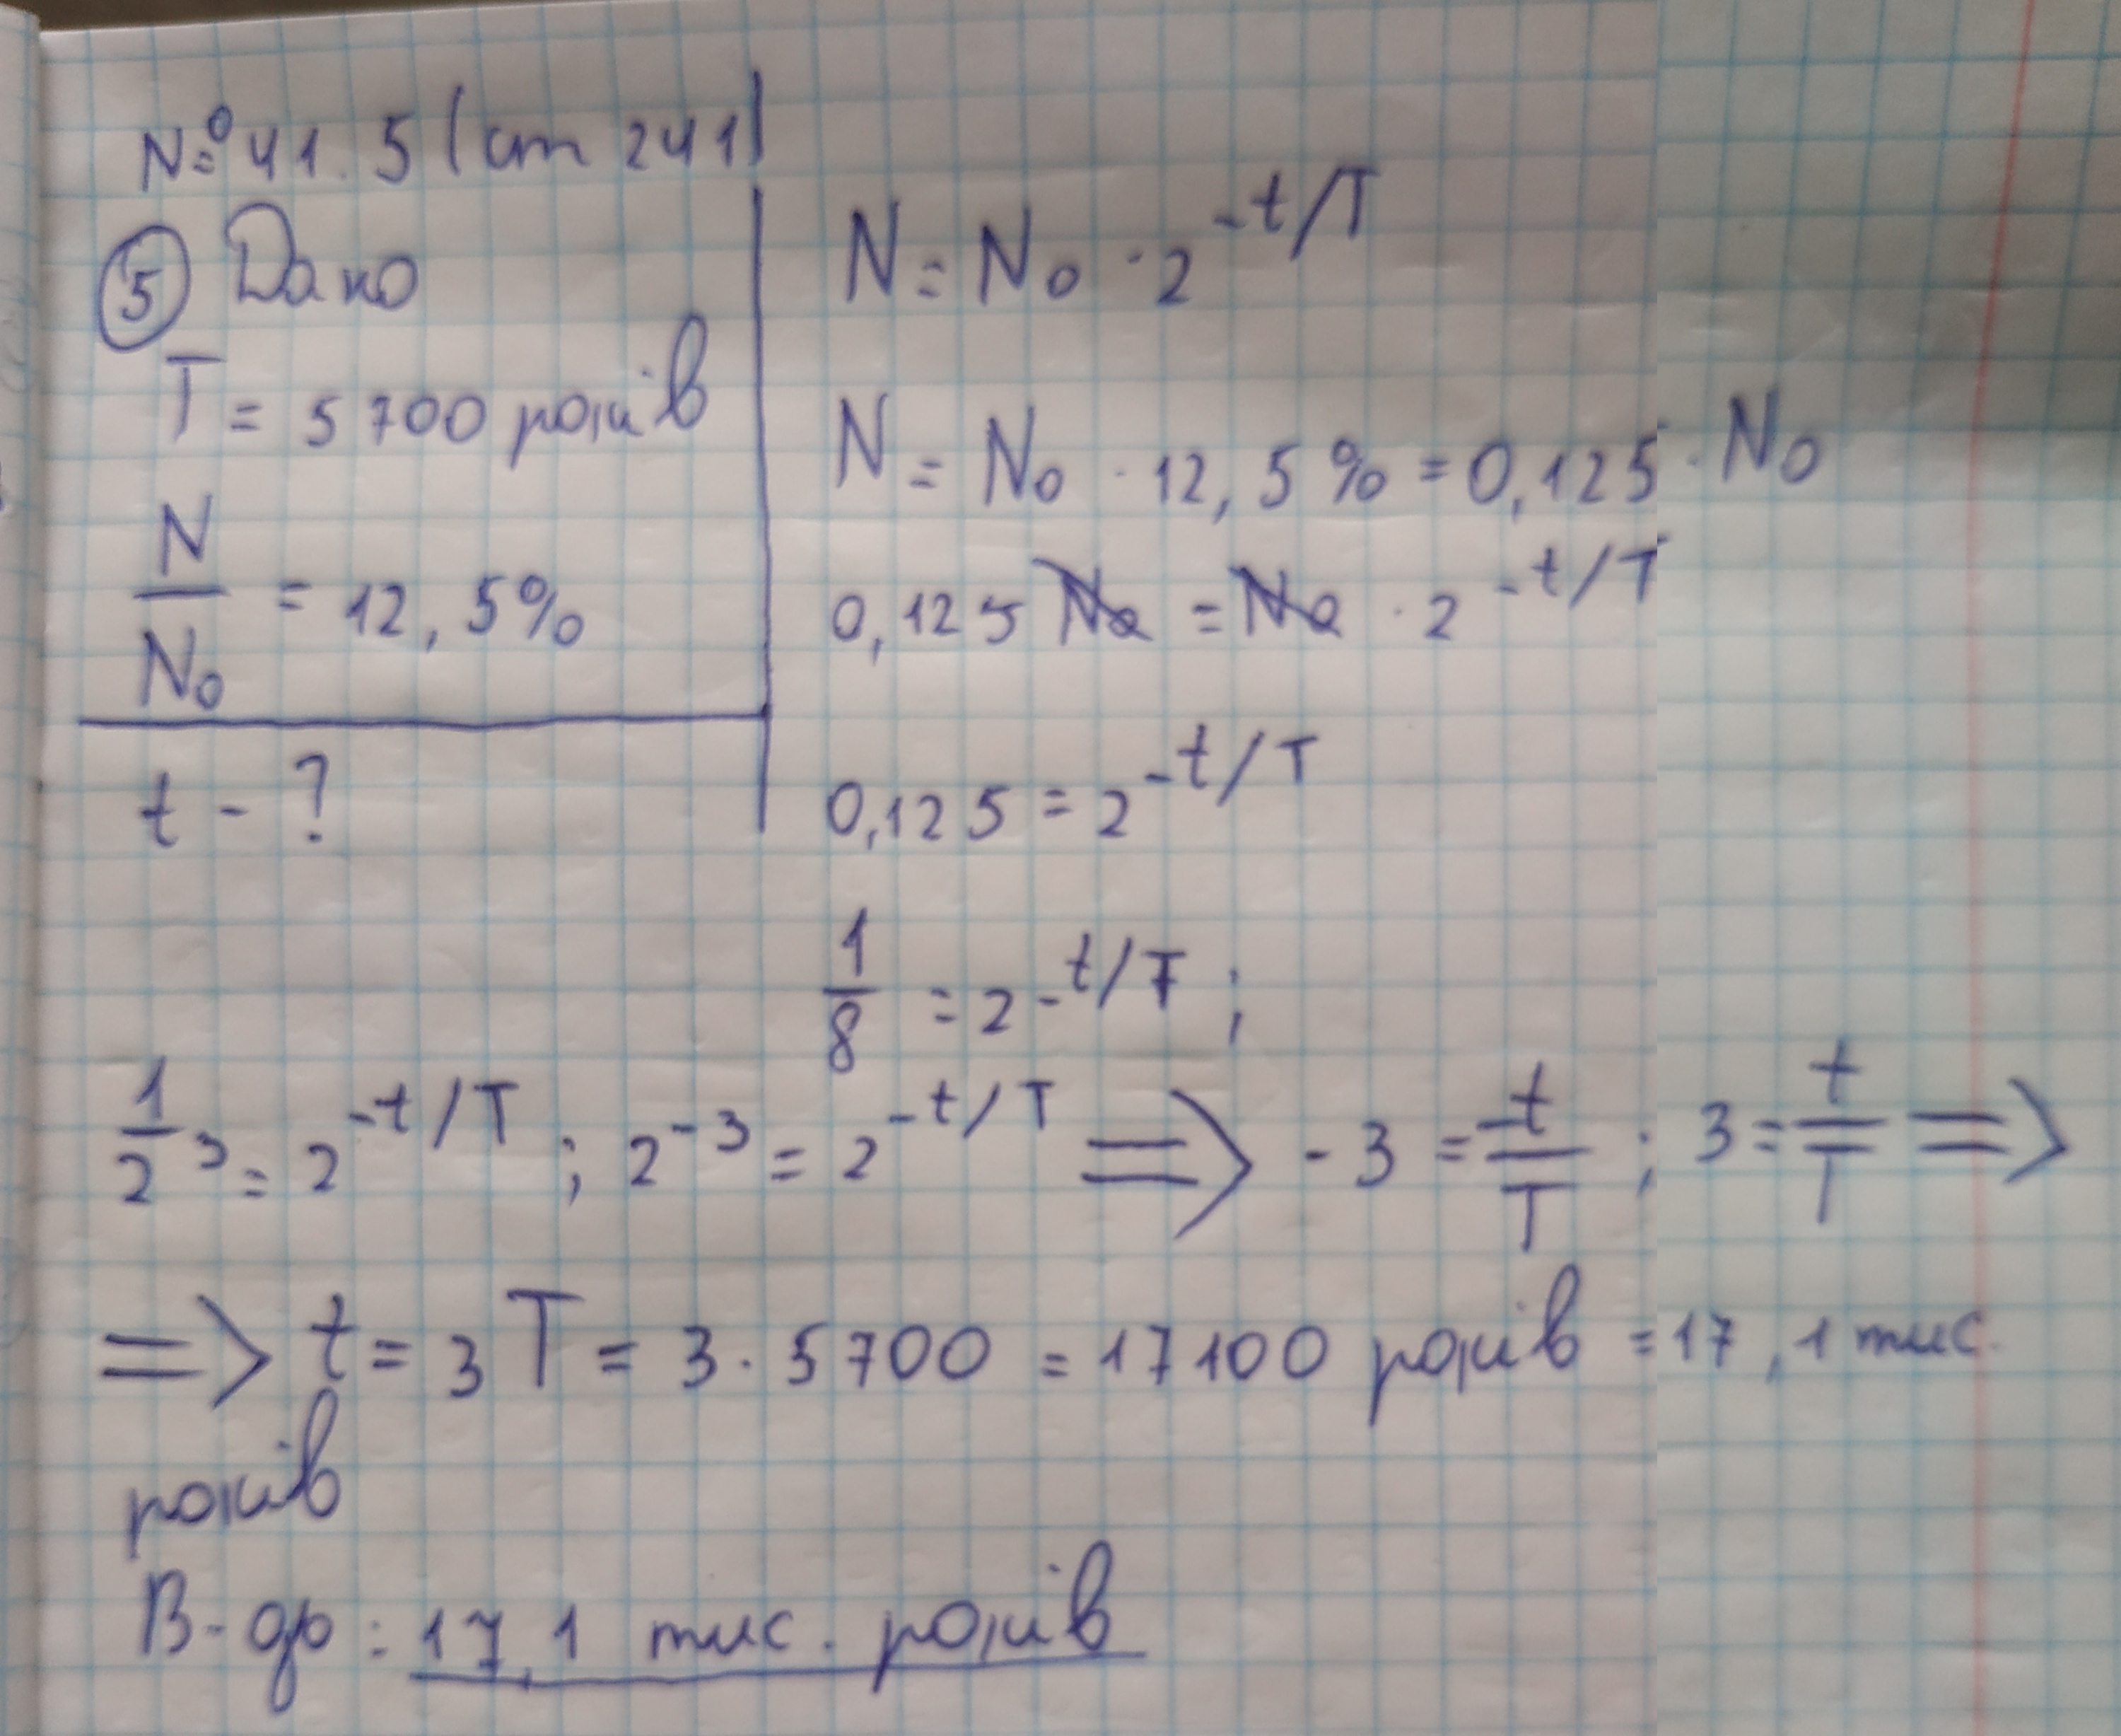 № 41.5 (ст 241)
5 Дано
T = 5700 років
N/N₀ = 12,5%
t - ?
N = N₀ · 2^(-t/T)
N = N₀ · 12,5% = 0,125 · N₀
0,125 N₀ = N₀ · 2^(-t/T)
0,125 = 2^(-t/T)
1/8 = 2^(-t/T) ;
1/2³ = 2^(-t/T) ; 2^(-3) = 2^(-t/T) => -3 = -t/T ; 3 = t/T =>
=> t = 3T = 3 · 5700 = 17100 років = 17,1 тис.
років
В-дь : 17,1 тис. років